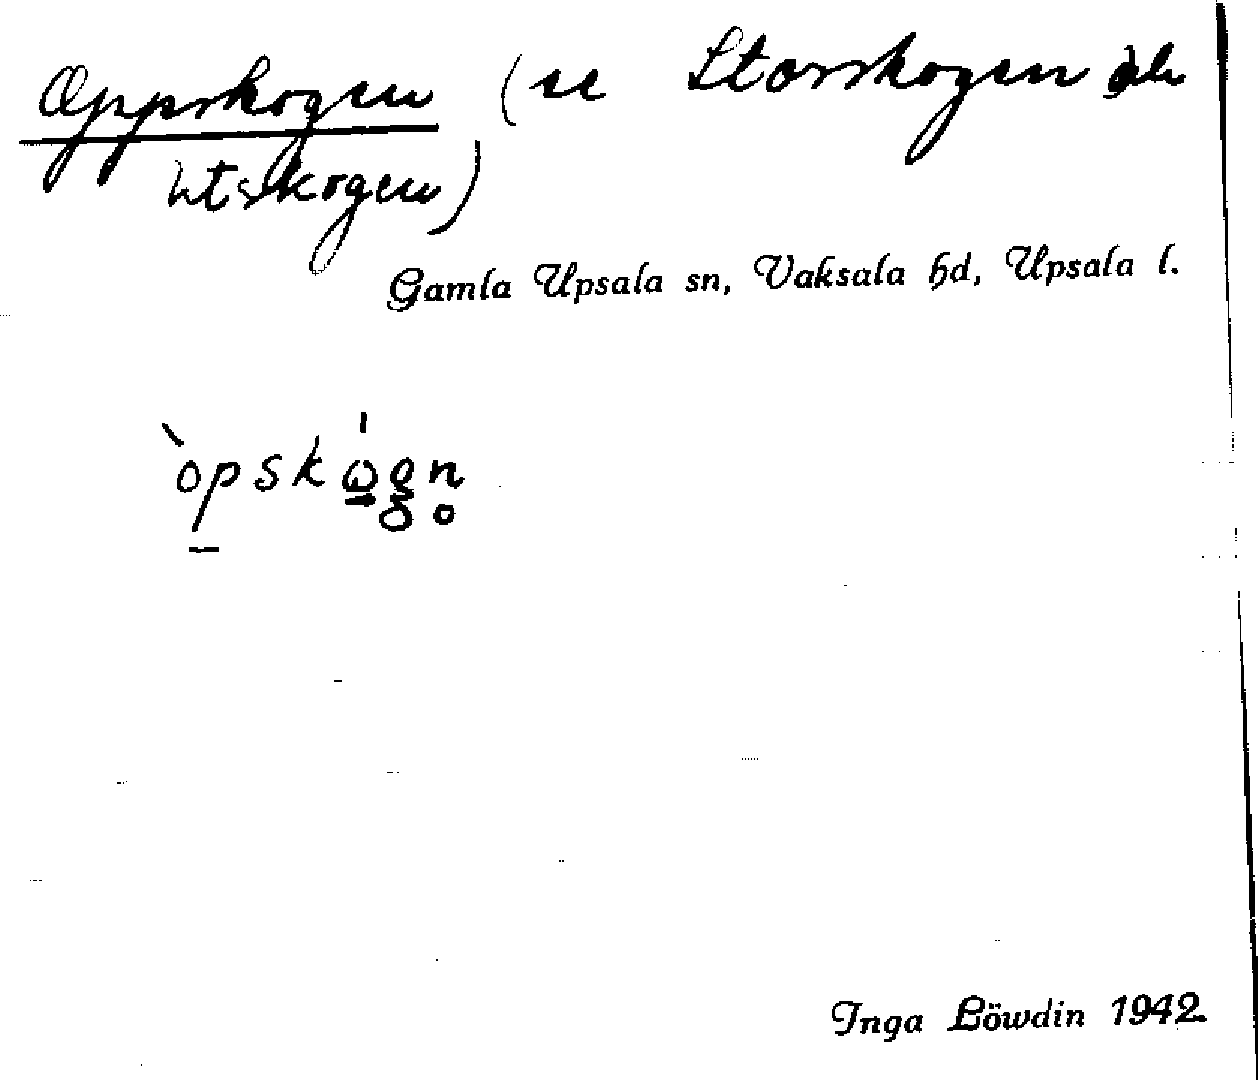 Oppskogen (se Storskogen
Utskogen)
Gamla Upsala sn, Vaksala hd, Upsala l.
Inga Löwdin 1942